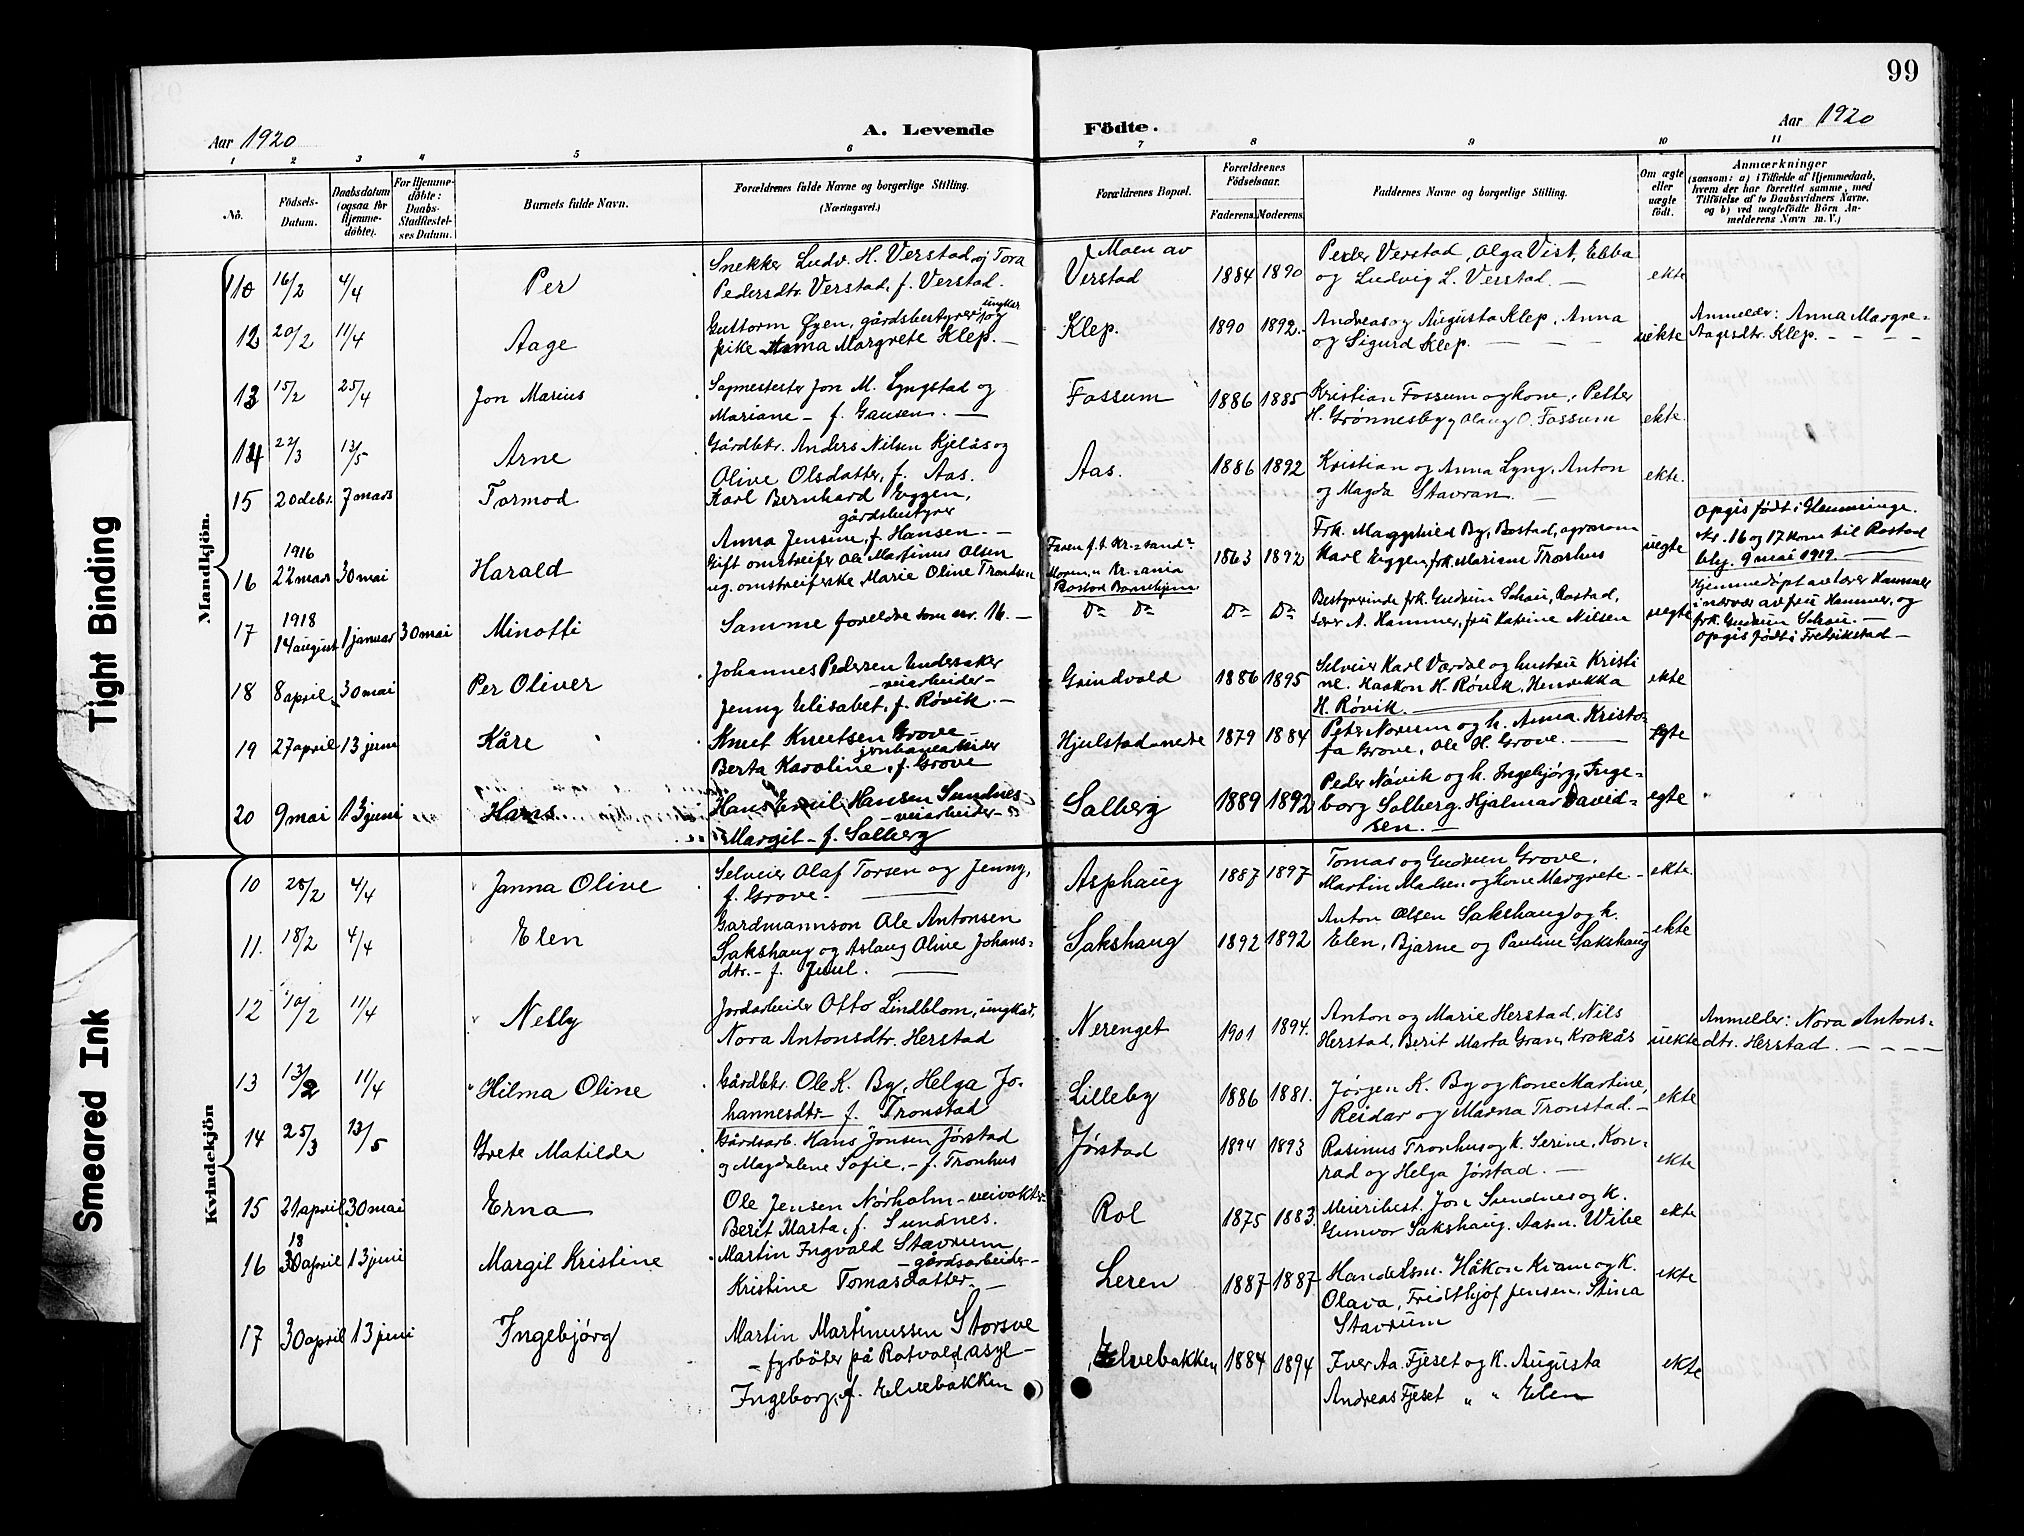 99
Aar 1920
A. Levende
Födte.
Aar 1920
1 2 3 4 5 6 7 8 9 10 11
Nô.
Födsels-
Datum.
Daabsdatum
(ogsaa for
Hjemme-
döbte).
For Hjemme-
döbte:
Daabs-
Stadfæstel-
ses Datum.
Barnets fulde Navn.
Forældrenes fulde Navne og borgerlige Stilling.
(Næringsvei.)
Forældrenes Bopæl.
Forældrenes
Födselsaar.
Faderens. Moderens.
Faddernes Navne og borgerlige Stilling.
Om ægte
eller
uægte
födt.
Anmærkninger
(saasom: a) i Tilfælde af Hjemmedaab,
hvem der har forrettet samme, med
Tilföielse af to Daabsvidners Navne,
og b) ved uægtefödte Börn An-
melderens Navn m. V.)
Mandkjön.
110 16/2 4/4 Per
Snekker Ludv. H. Verstad og Tora
Pedersdtr. Verstad, f. Verstad.
Moen av
Verstad 1884 1890
Peder Verstad, Olga Vist, Ebba
og Ludvig L. Verstad. —
ekte
12 20/2 11/4 Aage
Guttorm Øyen, gårdsbestyrer, ungkar og
pike Anna Margrete Klep. —
Klep. 1890 1892.
Andreas og Augusta Klep, Anna
og Sigurd Klep. — — —
uekte
Anmelder: Anna Margre-
Aagesdtr. Klep. — — — —
13 15/2 25/4 Jon Marius
Sagmester Jon M. Lyngstad og
Mariane — f. Gausen. —
Fossum 1886 1885
Kristian Fossum og kone, Petter
H. Grønnesby, Olaug O. Fossum
ekte.
14 22/3 13/5 Arne
Gårdbr. Anders Nilsen Kjelås og
Olive Olsdatter, f. Aas.
Aas. 1886 1892
Kristian og Anna Lyng, Anton
og Magda Stavran. —
ekte.
15 20 debr. 7 mars Tormod
Karl Bernhard Eggen,
gårdsbestyrer
Anna Jensine, f. Hansen. —
16 1916
22 mars 30 mai Harald
Gift omstreifer Ole Martinus Olsen
ug. omstreiferske Marie Oline Trondsen
Faren f. t. Kr.sand
Moren " Kr.ania
Rostad Barnehjem
1863 1892
Frk. Maggihild By, Rostad, agronom
Karl Eggen, frk. Mariane Tronhus
uegte
Opgis født i Hemminge.
Nr. 16 og 17 kom til Rostad
bhj. 9 mai 1919. —
17 1918
14 august 1 januar 30 mai Minotti
Samme foreldre som nr. 16. —
Do Do Do Do
Bestyrerinde frk. Gudrun Schau, Rostad,
lærer A. Hammer, fru Katrine Nilsen
uegte
Hjemmedøpt av lærer Hammer
i nærvær av fru Hammer, og
frk. Gudrun Schau. —
Opgis født i Fredrikstad —
18 8 april 30 mai Per Oliver
Johannes Pedersen Undersaker
— veiarbeider —
Jenny Elisabet, f. Røvik. —
Grindvold 1886 1895
Selveier Karl Vardal og hustru Kristi
ne. Haakon H. Røvik, Henrikka
H. Røvik. —
ekte
19 27 april 13 juni Kåre
Knut Knutsen Grove —
jernbanearbeider
Berta Karoline, f. Grove
Hjulstad nedre 1879 1884
Peter Norum og h. Anna. Kristo-
fa Grove, Ole H. Grove. —
egte
20 9 mai 13 juni Hans
Hans Emil Hansen Sundnes
— veiarbeider —
Margit — f. Salberg
Salberg 1889 1892
Peder Nøvik og h. Ingebjørg, Inge-
borg Salberg. Hjalmar David-
sen. —
egte
Kvindekjön
10 28/2 4/4 Janna Olive
Selveier Olaf Torsen og Jenny,
f. Grove. —
Asphaug 1887 1897
Tomas og Gudrun Grove.
Martin Madsen og kone Margrete —
ekte.
11. 18/2 4/4 Elen
Gardmannson Ole Antonsen
Sakshaug og Aslaug Olive Johans-
dtr. — f. Juul. —
Sakshaug 1892 1892
Anton Olsen Sakshaug og k.
Elen, Bjarne og Pauline Sakshaug
ekte
12 10/2 11/4 Nelly
Jordarbeider Otto Lindblom, ungkar,
Nora Antonsdtr. Herstad
Nerenget 1901 1894.
Anton og Marie Herstad, Nils
Herstad, Berit Marta Gran, Krokås
uekte
Anmelder: Nora Antons-
dtr. Herstad. — — — —
13 13/2 11/4 Hilma Oline
Gårdbr. Ole K. By, Helga Jo-
hannesdtr — f. Tronstad
Lilleby 1886 1881.
Jørgen K. By og kone Martine,
Reidar og Marna Tronstad. —
ekte
14 25/3 13/5 Grete Matilde
Gårdsarb. Hans Jonsen Jørstad
og Magdalene Sofie, — f. Tronhus
Jørstad 1894 1893
Rasinus Tronhus og k. Serine, Kon-
rad og Helga Jørstad. —
ekte
15 21 april 30 mai Erna
Ole Jensen Nørholm — veivokter
Berit Marta, f. Sundnes.
Rol 1875 1883.
Meieribest. Jon Sundnes og k.
Gunvor Sakshaug. Aasm. Wibe
ekte
16 18
30 april 13 juni Margit Kristine
Martin Ingvald Stavrum
— gårdsarbeider —
Kristine Tomasdatter —
Leren 1887 1887
Handelsm. Håkon Kvam og k.
Olava, Fridthjof Jensen, Stina
Stavrum
ekte
17 30 april 13 juni Ingebjörg
Martin Martinussen Storsve
— fyrbøter på Rotvold asyl —
Ingeborg, f. Elvebakken
Elvebakken 1884 1894
Iver Aa. Fjeset og k. Augusta
Andreas Fjeset " " Elen
ekte
Tight Binding
Smeared Ink